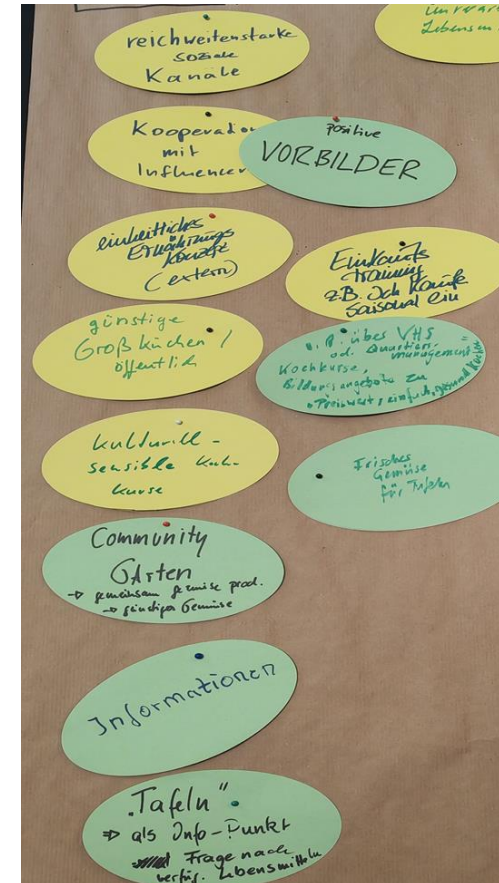 reichweitenstarke
soziale
Kanäle
Lebensm
Kooperation
mit
Influencer
positive
VORBILDER
einheitliches
Ernährungs
Konzept
(extern)
Einkaufs
training
z.B. Ich kaufe
saisonal ein
günstige
Großküchen /
öffentlich
z.B. über VHS
od. Quartiers-
management
Kochkurse,
Bildungsangebote zu
"Preiswert, einfach, gesund kochen"
kulturell-
sensible Koch-
kurse
Frisches
Gemüse
für Tafeln
Community
GArten
→ gemeinsam gemüse prod.
→ günstiges Gemüse
Informationen
"Tafeln"
⇒ als Info-Punkt
Frage nach
verfüg. Lebensmitteln